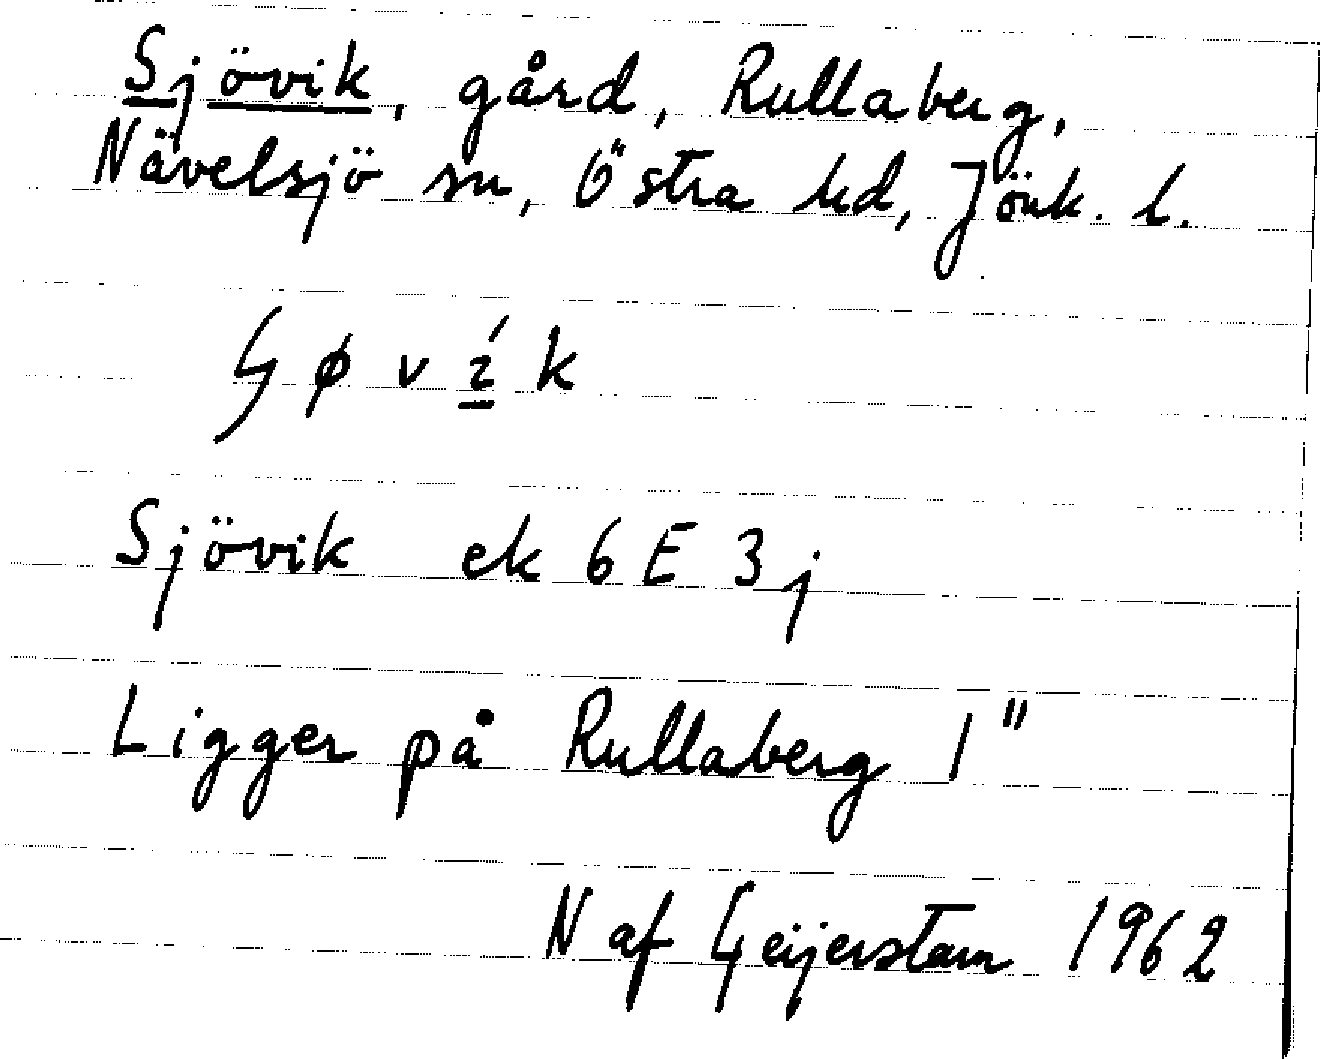 Sjövik, gård, Rullaberg,
Nävelsjö sn, Östra hd, Jönk. l.
ø v í k
Sjövik ek 6 E 3 j
Ligger på Rullaberg 1"
N af Geijerstam 1962